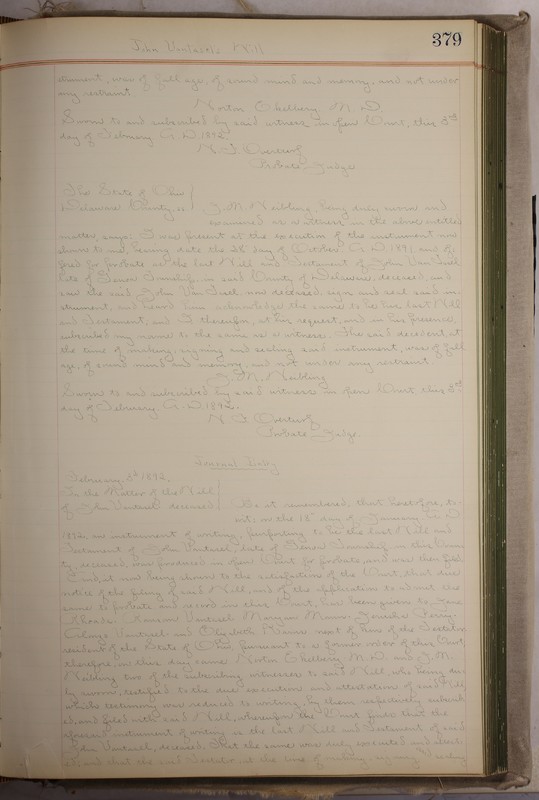 John Vantasel's Will
379
strument, was of full age, of sound mind and memory, and not under
any restraint.
Norton Chellery M. D.
Sworn to and subscribed by said witness in open Court, this 3rd
day of February A. D. 1892
Probate Judge
The State of Ohio
Delaware County, ss
J. M. Neibling being duly sworn and
examined as a witness in the above entitled
matter, says: I was present at the execution of the instrument now
shown to me, bearing date the 28 day of October A. D. 1891 and of-
fered for probate as the last Will and Testament of John Van Tasel
late of Genoa Township in said County of Delaware, deceased, and
saw the said John Van Tasel now deceased, sign and seal said in-
strument, and heard him acknowledge the same to be his last Will
and Testament, and I thereupon, at his request, and in his presence,
subscribed my name to the same as a witness. The said decedent, at
the time of making, signing and sealing said instrument, was of full
age, of sound mind and memory, and not under any restraint.
J. M. Neibling
Sworn to and subscribed by said witness in open Court, this 3rd
day of February A. D. 1892.
Probate Judge.
Journal Entry
February 3d 1892.
In the Matter of the Will
of John Vantasel deceased
Be it remembered, that heretofore, to-
wit: on the 18" day of January A. D.
1892, an instrument of writing, purporting to be the last Will and
Testament of John Vantasel, late of Genoa Township in this Coun-
ty, deceased, was produced in open Court for probate, and was then filed.
And, it now being shown to the satisfaction of the Court, that due
notice of the filing of said Will, and of the application to admit the
same to probate and record in this Court, has been given to Jane
Rhoads Vantasel
Vantasel and Elizabeth next of kin of the Testator
resident of the State of Ohio, pursuant to a former order of this Court,
therefore, on this day came Norton Chellery M. D. and J. M.
Neibling two of the subscribing witnesses to said Will, who being du-
ly sworn, testified to the due execution and attestation of said Will
which testimony was reduced to writing, by them respectively subscrib-
ed, and filed with said Will, whereupon the Court finds that the
aforesaid instrument of writing is the last Will and Testament of said
John Vantasel, deceased, that the same was duly executed and attest-
ed, and that the said Testator at the time of making signing and sealing